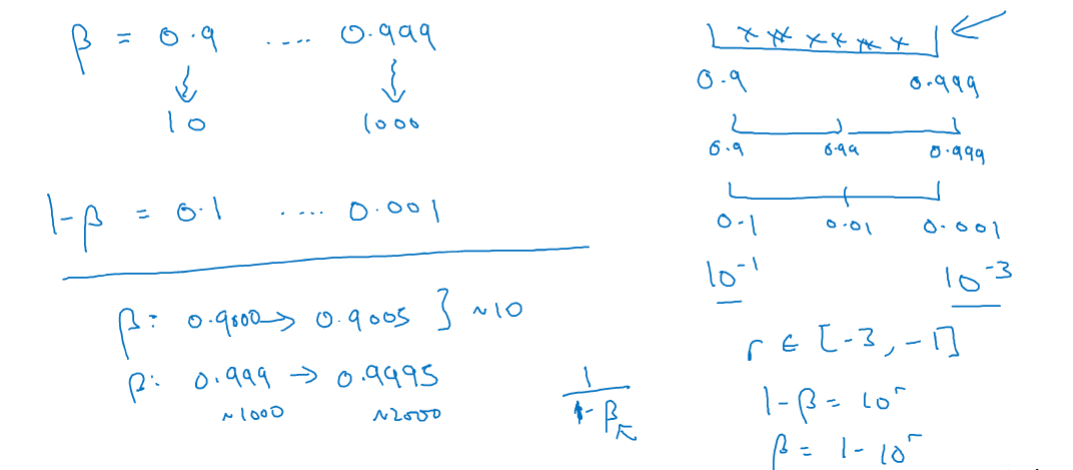 β = 0.9 .... 0.999
10 1000
1-β = 0.1 .... 0.001
β: 0.9000 → 0.9005 } ~10
β: 0.999 → 0.9995
~1000 ~2000
1
1-β
x x x x x x x
0.9 0.999
0.9 0.99 0.999
0.1 0.01 0.001
10⁻¹ 10⁻³
r ∈ [-3, -1]
1-β = 10ʳ
β = 1-10ʳ